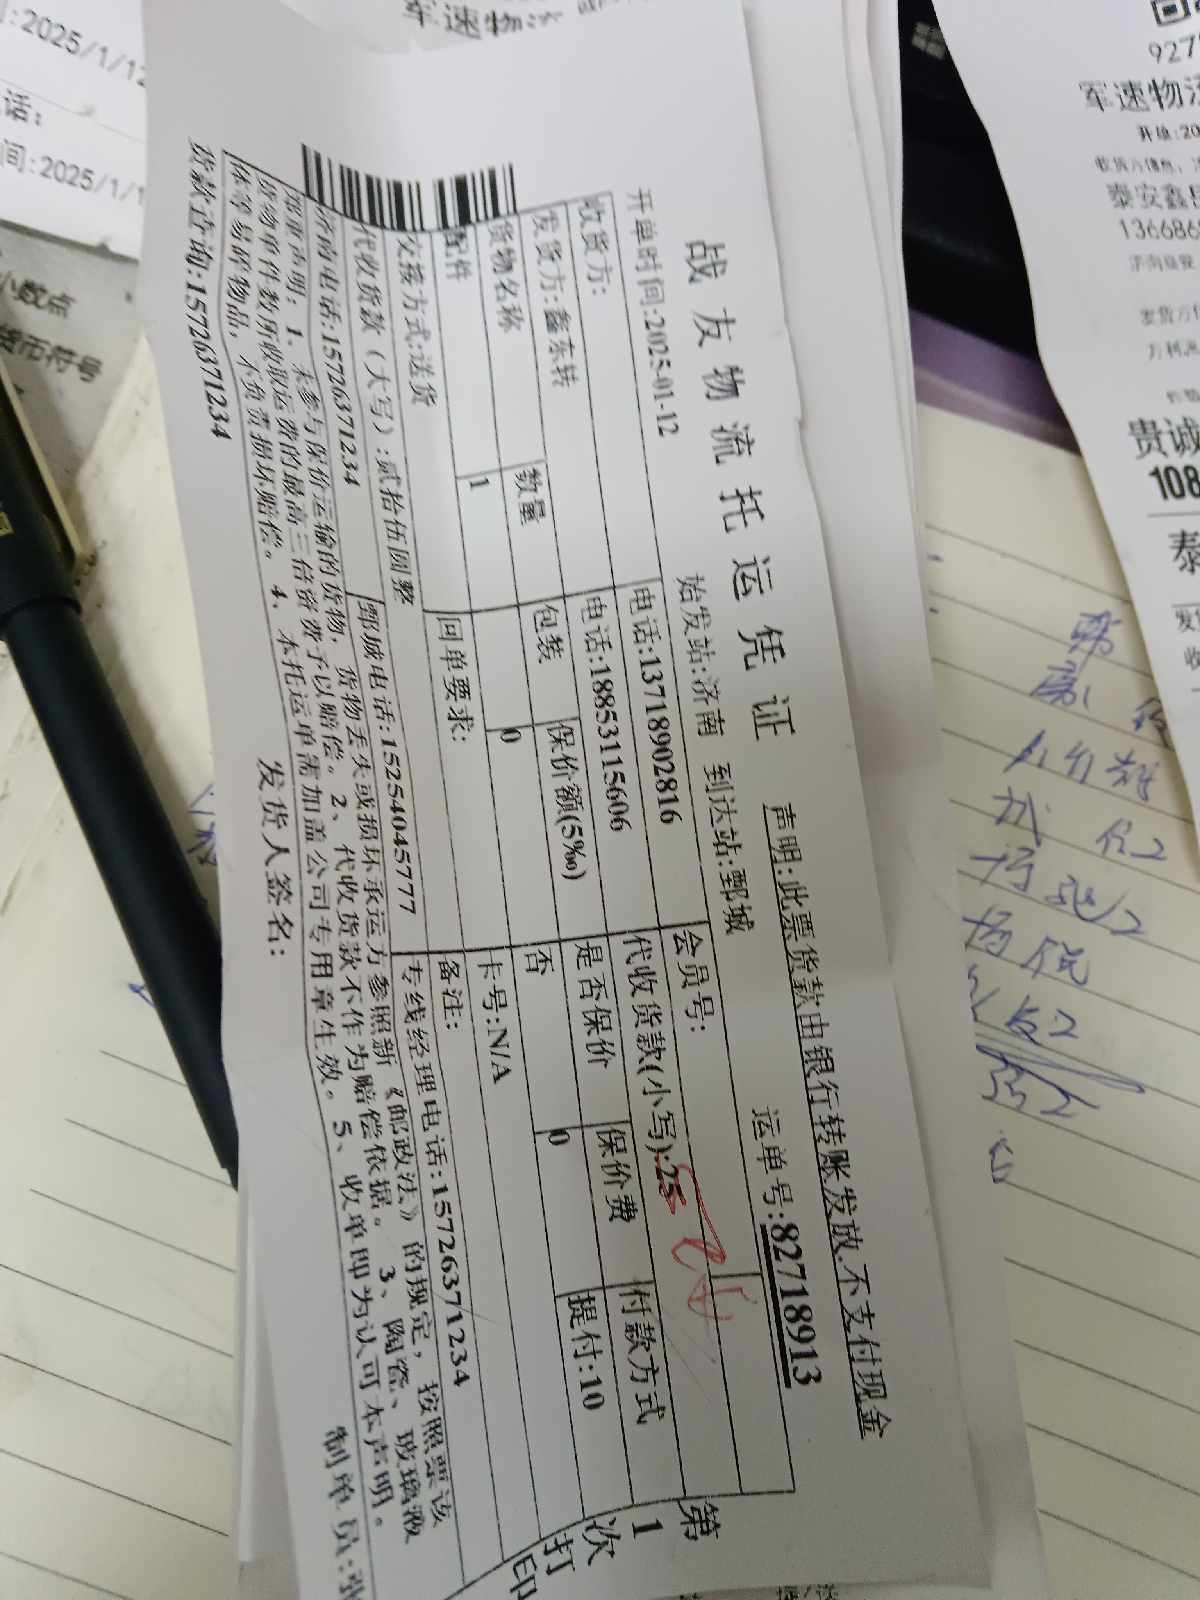 战友物流托运凭证
声明:此票货款由银行转账发放,不支付现金
开单时间:2025-01-12 始发站:济南 到达站:鄄城 运单号:82718913
收货方: 电话:13718902816 会员号:
发货方:鑫东转 电话:18853115606 代收货款(小写):25 付款方式
货物名称 数量 包装 保价额(5‰) 是否保价 保价费 提付:10
配件 1 0 否 0
交接方式:送货 回单要求: 卡号:N/A
代收货款(大写):贰拾伍圆整 备注:
济南电话:15726371234 鄄城电话:15254045777 专线经理电话:15726371234
郑重声明:1、未参与保价运输的货物,货物丢失或损坏承运方参照新《邮政法》的规定,按照票该
货物件数所收取运费的最高三倍资费予以赔偿。2、代收货款不作为赔偿依据。3、陶瓷、玻璃液
体等易碎物品,不负责损坏赔偿。4、本托运单需加盖公司专用章生效。5、收单即为认可本声明。
货款查询:15726371234 发货人签名: 制单员:
第1次打印
军速物流
:2025/1/12
话:
间:2025/1/1
小数点
货币符号
927
军速物流
开单:20
泰安鑫
13668
发货方
贵诚
108
泰